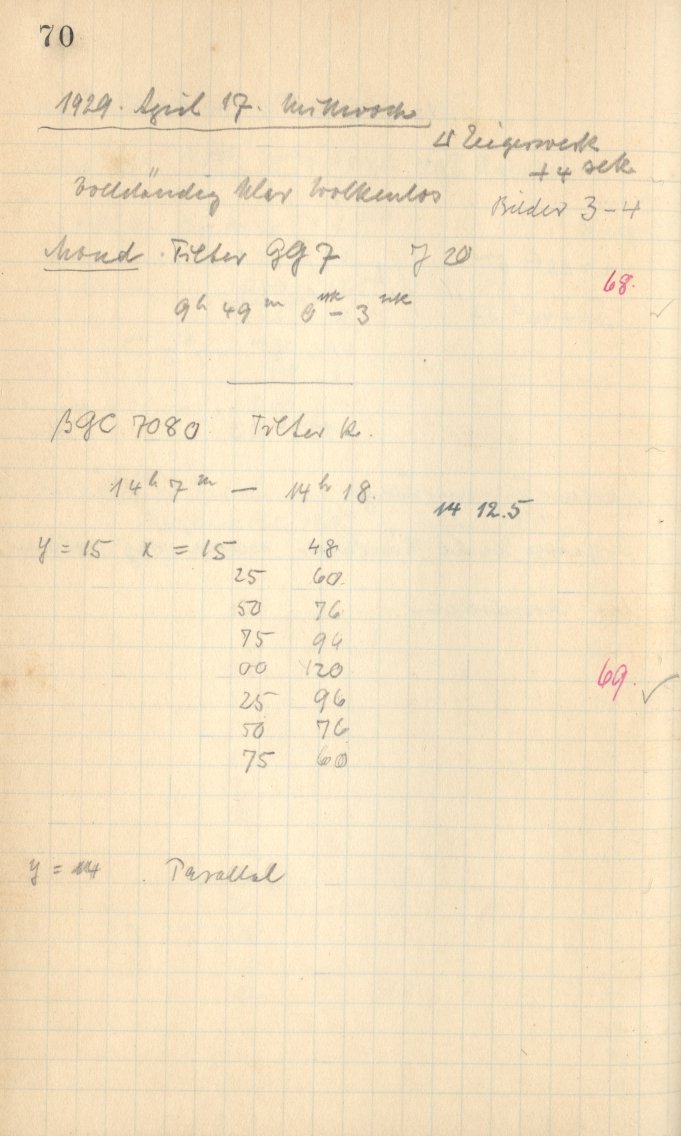 70
1929. April 17. Mittwoch
Zeigerwerk
+4 sek
vollständig klar Wolkenlos
Bilder 3-4
Mond. Filter GG 7 J 20
68.
9h 49m 0sek - 3sek
βGC 7080 Filter k.
14h 7m — 14h 18.
14 12.5
y = 15 x = 15 48
25 60
50 76
75 94
00 120
25 96
69.
50 76
75 60
y = 14 Parallel